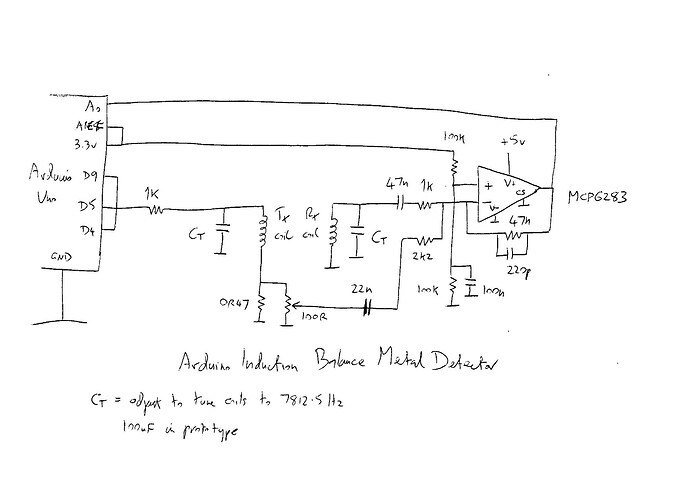 A0
AREF
3.3v
Arduino
Uno
D9
D5
D4
GND
1K
CT
Tx
coil
Rx
coil
CT
47n
1K
2k2
100K
+5v
+
-
V+
V-
CS
MCP6283
47n
220p
100k
100n
0R47
100R
22n
Arduino Induction Balance Metal Detector
CT = adjust to tune coils to 7812.5 Hz
100nF in prototype